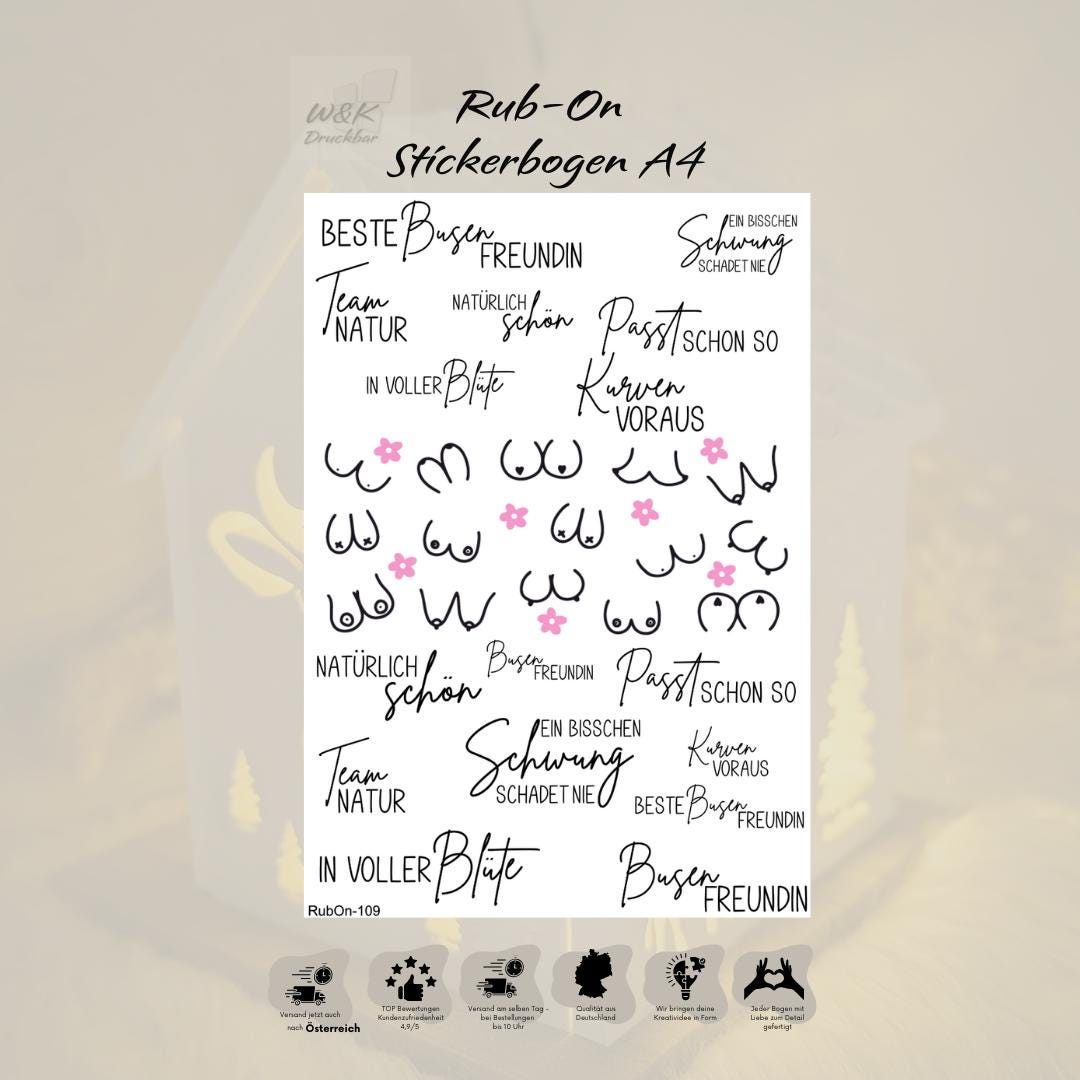 W&K
Druckbar
Rub-On
Stickerbogen A4
BESTE Busen
FREUNDIN
EIN BISSCHEN
Schwung
SCHADET NIE
Team
NATUR
NATÜRLICH
schön
Passt SCHON SO
IN VOLLER Blüte
Kurven
VORAUS
NATÜRLICH
schön
Busen
FREUNDIN
Passt SCHON SO
Team
NATUR
EIN BISSCHEN
Schwung
SCHADET NIE
Kurven
VORAUS
BESTE Busen
FREUNDIN
IN VOLLER Blüte
Busen
FREUNDIN
RubOn-109
Versand jetzt auch
nach Österreich
TOP Bewertungen
Kundenzufriedenheit
4,9/5
Versand am selben Tag -
bei Bestellungen
bis 10 Uhr
Qualität aus
Deutschland
Wir bringen deine
Kreatividee in Form
Jeder Bogen mit
Liebe zum Detail
gefertigt